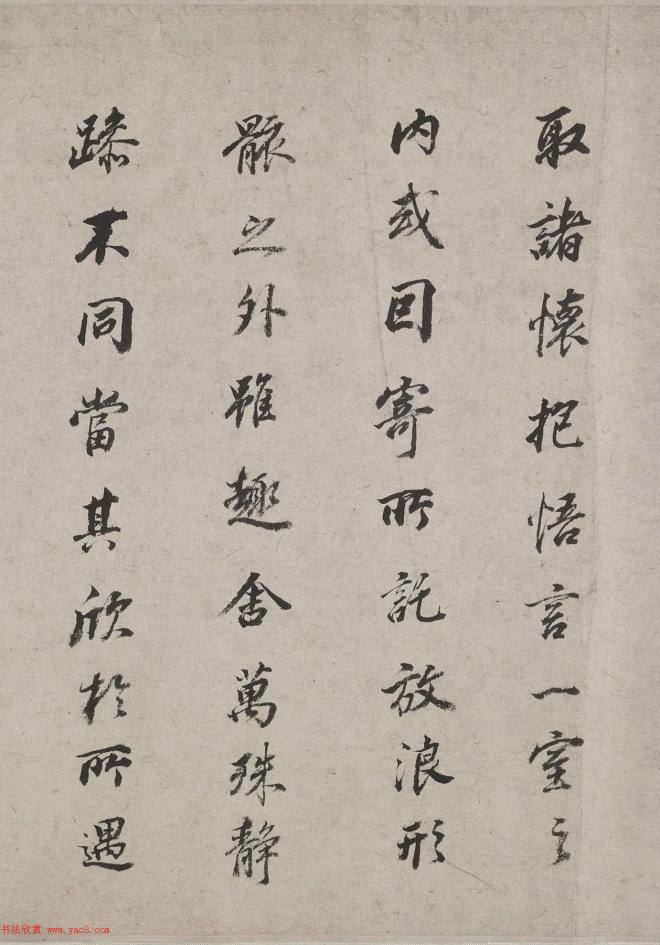 取諸懷抱悟言一室之
內或因寄所託放浪形
骸之外雖趣舍萬殊靜
躁不同當其欣於所遇
书法欣赏 www.yac8.com